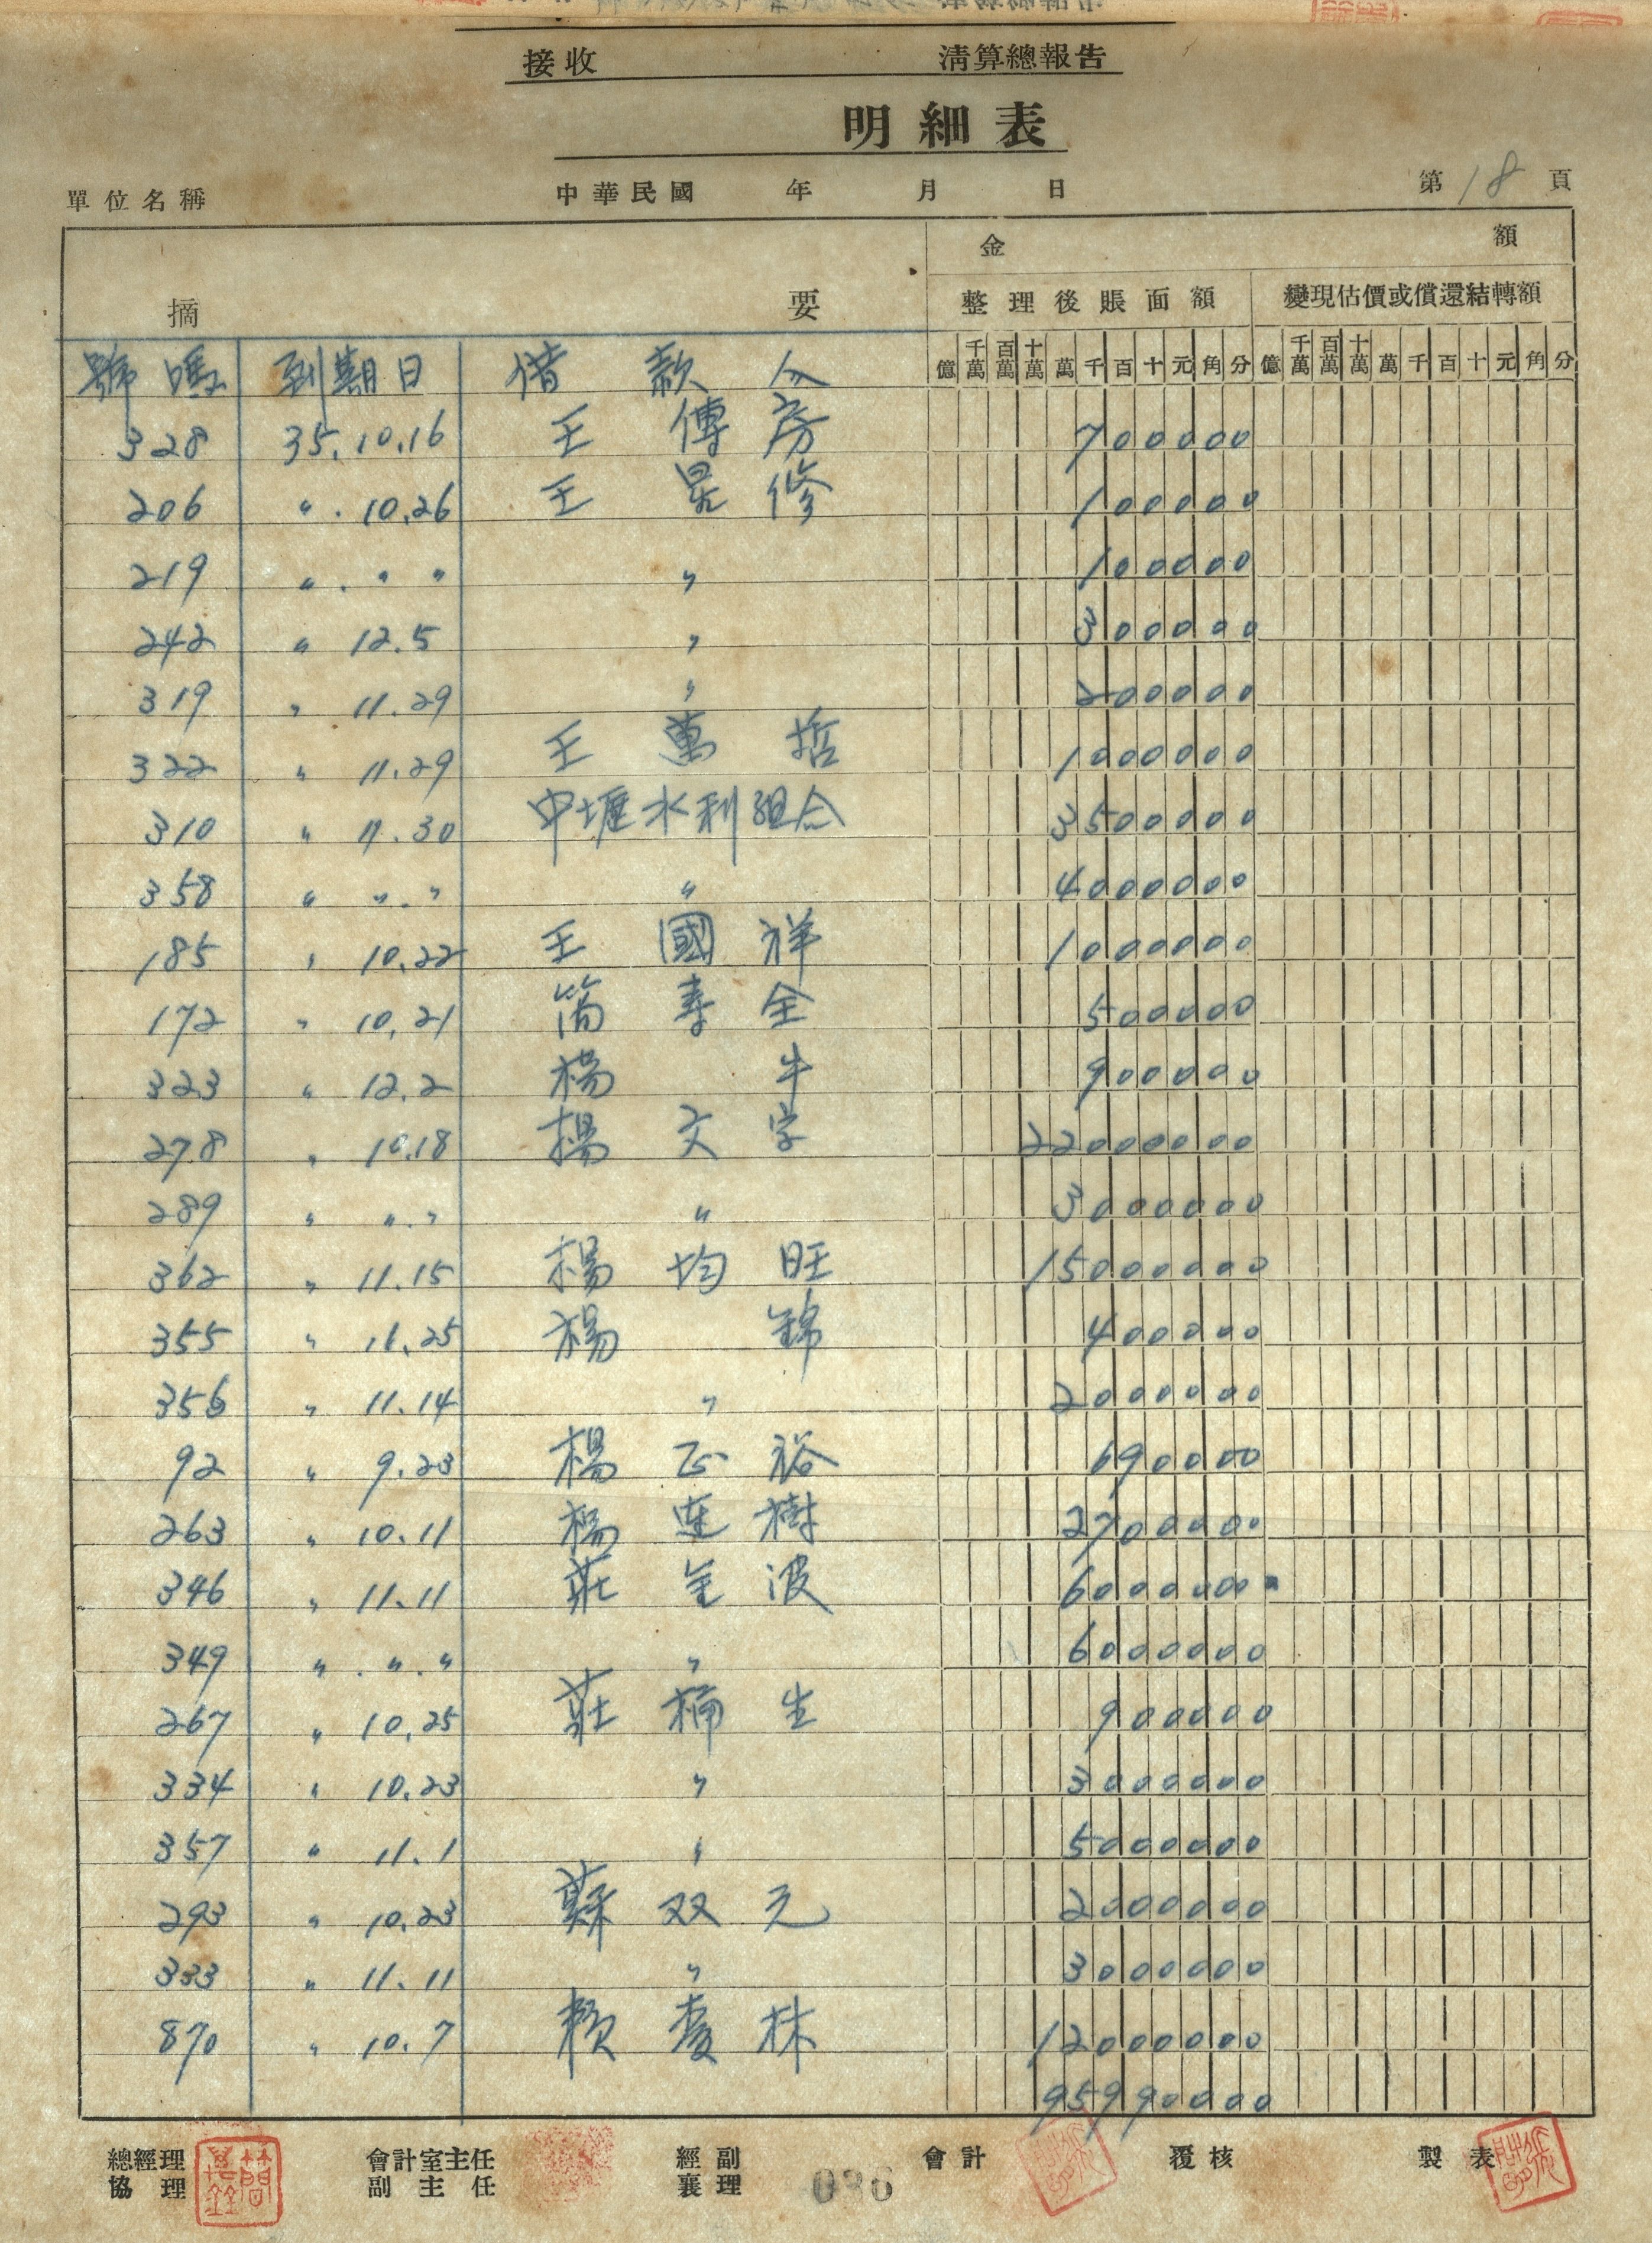 接收 清算總報告
明細表
單位名稱 中華民國 年 月 日 第18頁
金 額
摘 要 整理後賬面額 變現估價或償還結轉額
億 千萬 百萬 十萬 萬 千 百 十 元 角 分 億 千萬 百萬 十萬 萬 千 百 十 元 角 分
號碼 到期日 借款人
328 35.10.16 王傳房 700000
206 〃.10.26 王 修 100000
219 〃.〃〃 〃 100000
242 〃 12.5 〃 300000
319 〃 11.29 〃 200000
322 〃 11.29 王萬哲 1000000
310 〃 11.30 中壢水利組合 3500000
358 〃 〃.〃 〃 4000000
185 〃 10.22 王國祥 1000000
172 〃 10.21 简壽全 500000
323 〃 12.2 楊牛 900000
278 〃 10.18 楊文字 22000000
289 〃 〃.〃 〃 3000000
362 〃 11.15 楊均旺 15000000
355 〃 11.25 楊錦 400000
356 〃 11.14 〃 2000000
92 〃 9.23 楊正裕 690000
263 〃 10.11 楊連樹 2700000
346 〃 11.11 莊金波 6000000
349 〃.〃.〃 〃 6000000
267 〃 10.25 莊 生 900000
334 〃 10.23 〃 3000000
357 〃 11.1 〃 5000000
293 〃 10.23 蘇双元 2000000
333 〃 11.11 〃 3000000
870 〃 10.7 賴 林 12000000
95990000
總經理 會計室主任 經副 會計 覆核 製表
協理 副主任 襄理 036